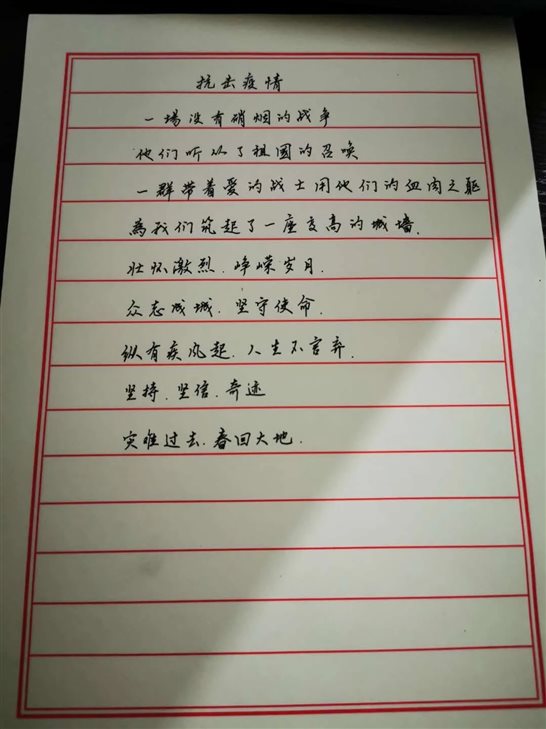 抗击疫情
一場没有硝烟的战争
他们听从了祖國的召唤
一群带着爱的战士用他们的血肉之躯
為我们筑起了一座高的城墙.
壮怀激烈.峥嵘岁月.
众志成城.坚守使命.
纵有疾风起.人生不言弃.
坚持.坚信.奇迹
灾难过去.春回大地.